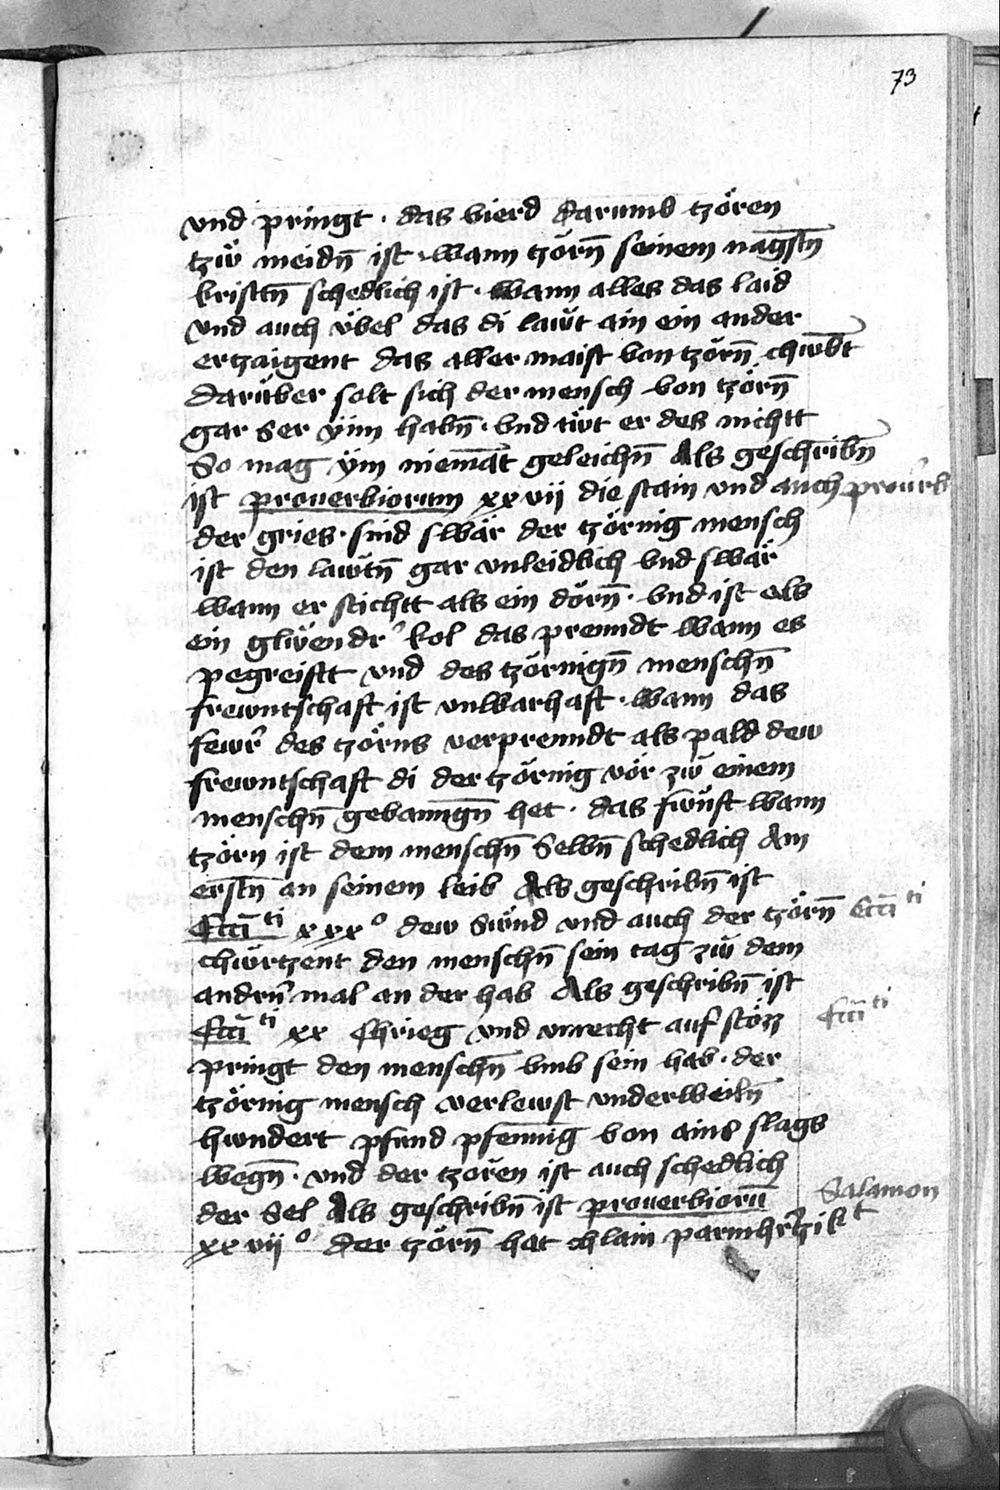 73
vnd pringt · das vierd darumb tzören
tzw̋ meidn̄ ist · wann tzörn̄ seinem nagstn̄
kristn̄ schedlich ist · wann alles das laid
vnd auch v̈bel das di law̋t ain ein ander
ertzaigent das aller maist von tzörn̄ chw̄bt
darüber solt sich der mensch von tzörn̄
gar ser ÿim habn̄ · vnd tüt er des nichtt
So mag ÿm niemāt geleichn̄ Als geschribn̄
ist prouerbiorum xxvii die stain vnd auch prou̓rb
der gries · sind swär der tzörnig mensch
ist den law̋tn̄ gar vnleidlich vnd swär
wann er stichtt als ein dörn̄ · vnd ist als
ein glüendr̓ kol das prenndt wann es
pegreiftt vnd des tzörnign̄ menschn̄
frewntschaft ist vnwarhaft · wann das
fewr̓ des tzörns verprenndt als pald dew
frewntschaft di der tzörnig vör zw̋ einem
menschn̄ gehanngn̄ het · das fünft wann
tzörn ist dem menschn̄ Selbn̄ schedlich Am
erstn̄ an seinem leib Als geschribn̄ ist
Ecciᵗⁱ xxxº dew Sünd vnd auch der tzörn̄ Ecciᵗⁱ
chürtzent den menschn̄ sein tag zw̋ dem
andrn̓ mal an der hab Als geschribn̄ ist
Ecciᵗⁱ xx Chrieg vnd vnrecht auf stözz Ecciᵗⁱ
pringt den menschn̄ vmb sein hab · der
tzörnig mensch verlewst vnderweiln̄
hwndert pfund pfennig von ains slags
wegn̄ · vnd der tzoren ist auch schedlich
der Sel Als geschribn̄ ist prouerbiorū Salamon
xxviiº der tzörn̄ hat chlain parmhr̓tzikᵗ